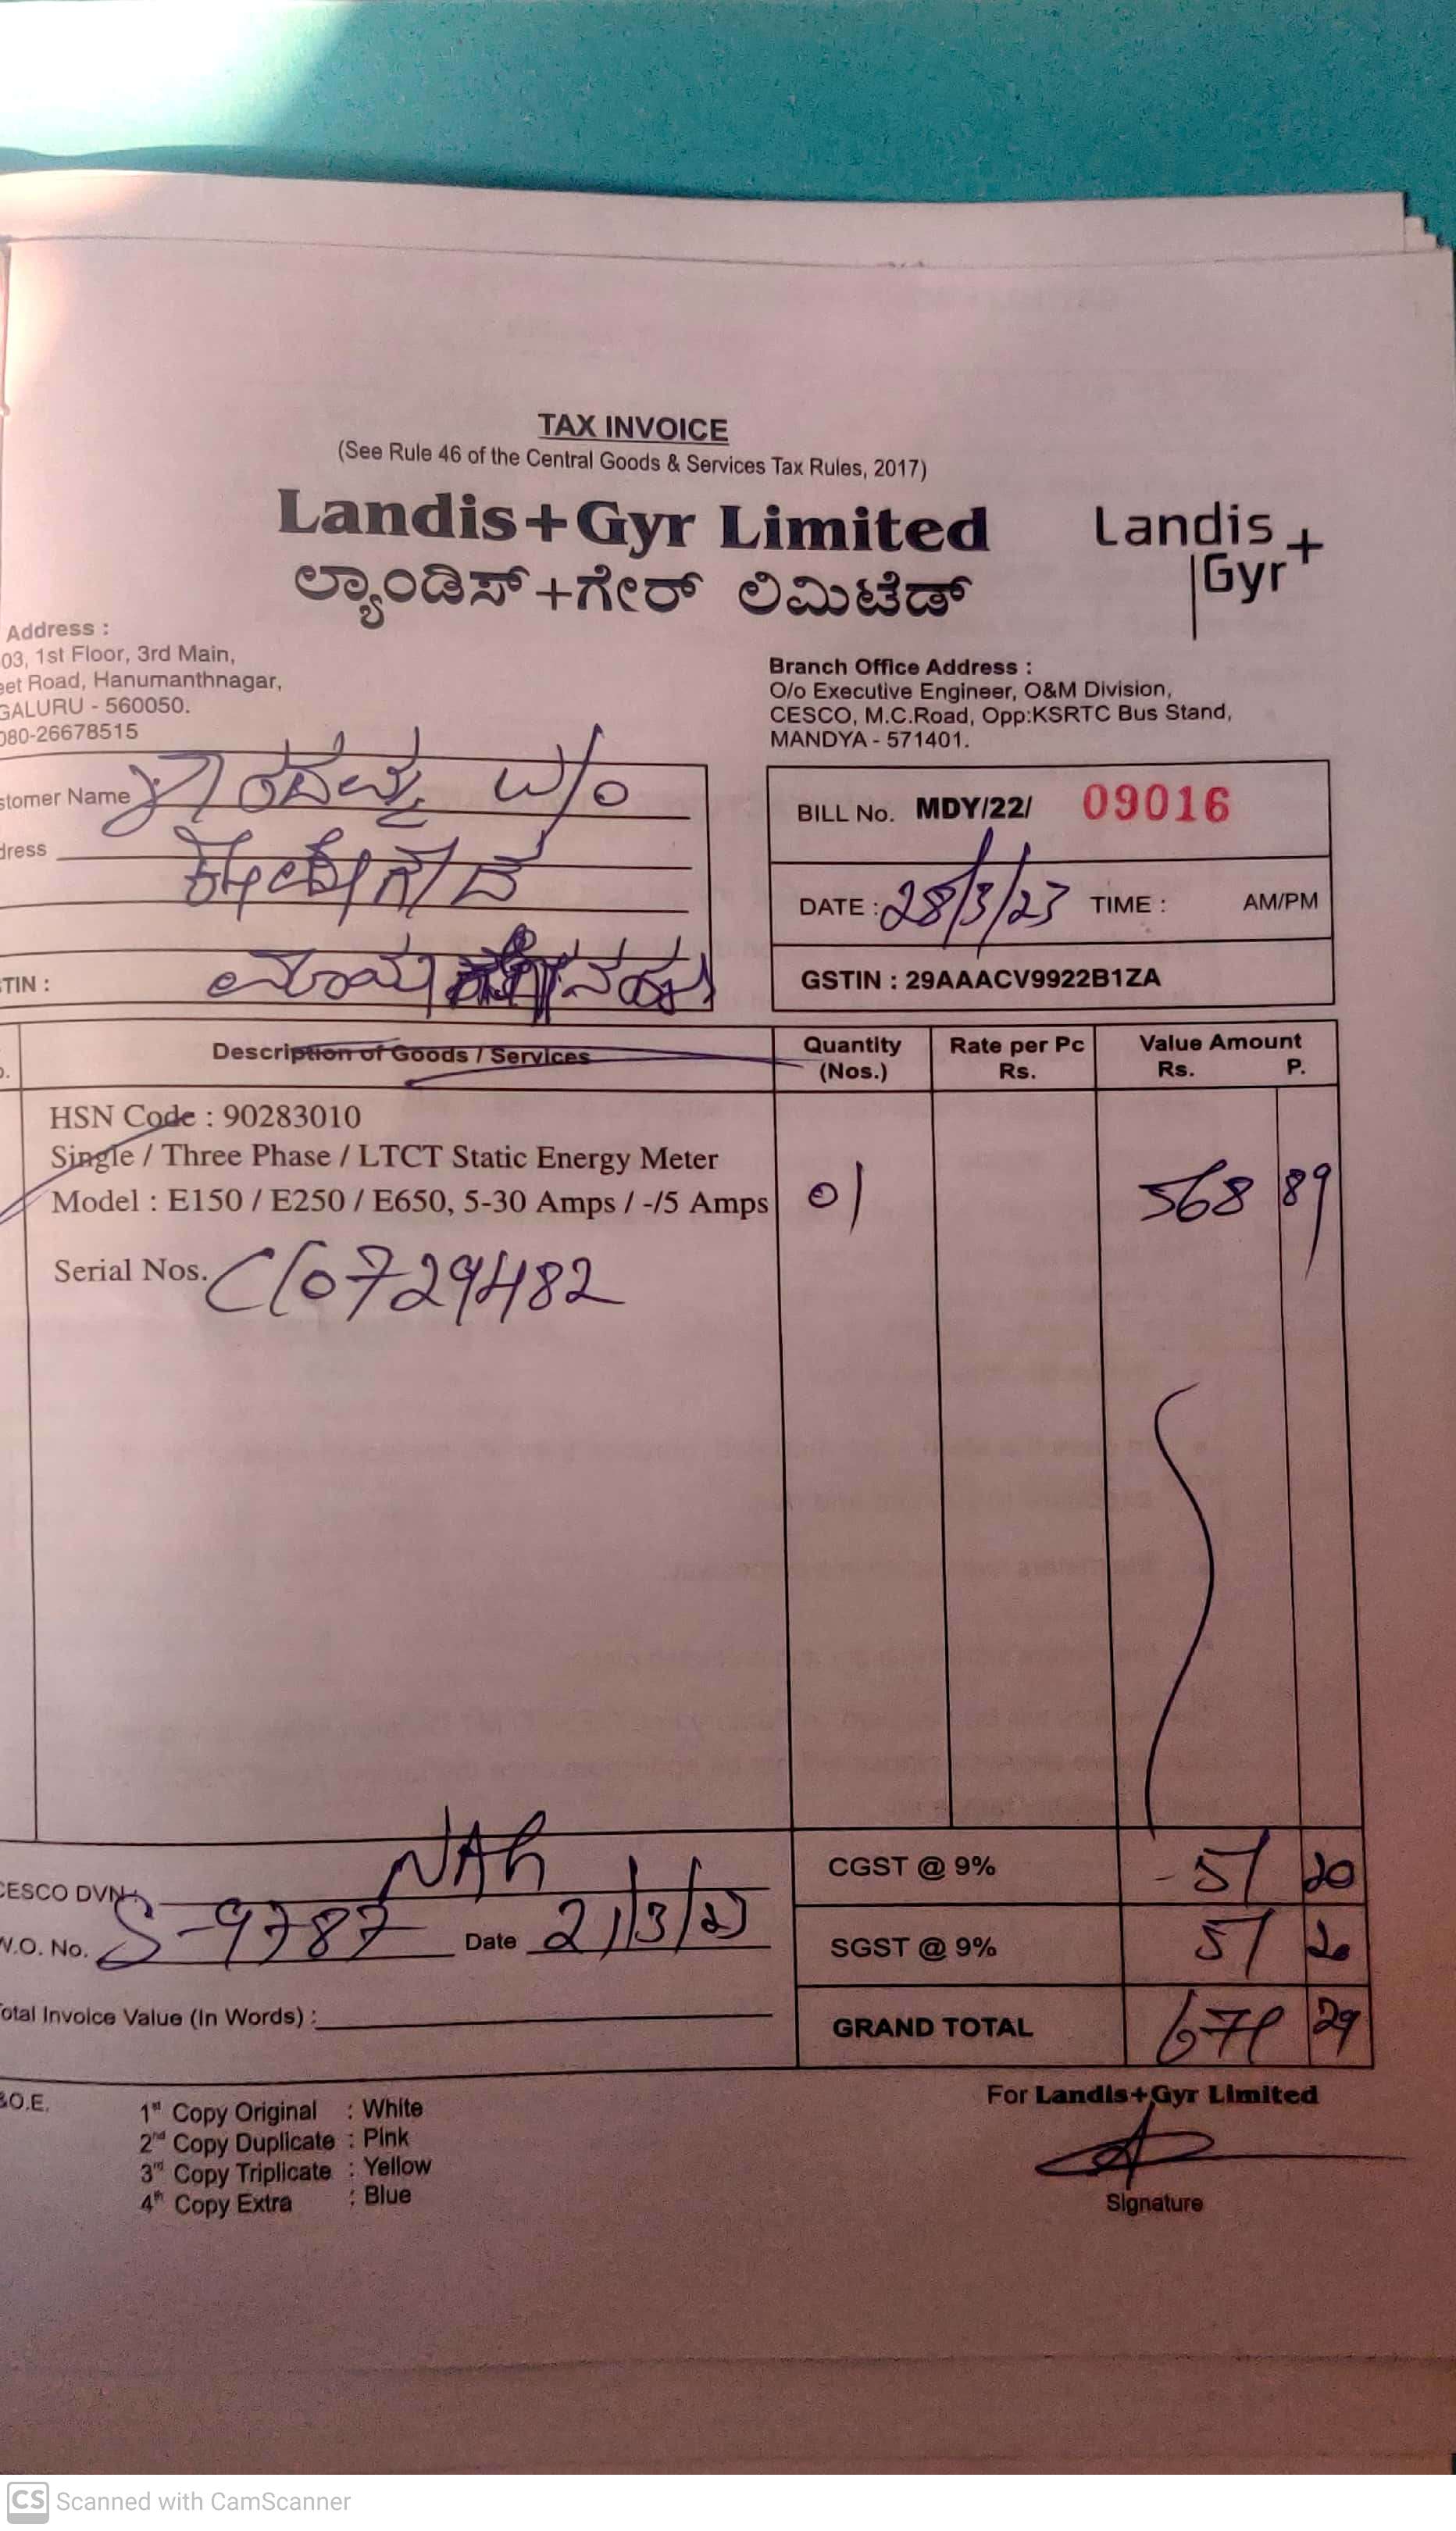 TAX INVOICE
(See Rule 46 of the Central Goods & Services Tax Rules, 2017)
Landis+Gyr Limited
ಲ್ಯಾಂಡಿಸ್+ಗೇರ್ ಲಿಮಿಟೆಡ್
Landis
Gyr+
Address :
03, 1st Floor, 3rd Main,
eet Road, Hanumanthnagar,
GALURU - 560050.
080-26678515
Branch Office Address :
O/o Executive Engineer, O&M Division,
CESCO, M.C.Road, Opp:KSRTC Bus Stand,
MANDYA - 571401.
stomer Name W/o
dress
TIN :
BILL No. MDY/22/ 09016
DATE : 28/3/23 TIME : AM/PM
GSTIN : 29AAACV9922B1ZA
Description of Goods / Services Quantity (Nos.) Rate per Pc Rs. Value Amount Rs. P.
HSN Code : 90283010
Single / Three Phase / LTCT Static Energy Meter
Model : E150 / E250 / E650, 5-30 Amps / -/5 Amps 01 568 89
Serial Nos. 0729482
CESCO DVN.
CGST @ 9% 51 20
W.O. No. S-9787 Date 21/3/23
SGST @ 9% 51 20
Total Invoice Value (In Words) :
GRAND TOTAL 671 29
&O.E.
1st Copy Original : White
2nd Copy Duplicate : Pink
3rd Copy Triplicate : Yellow
4th Copy Extra : Blue
For Landis+Gyr Limited
Signature
CS Scanned with CamScanner